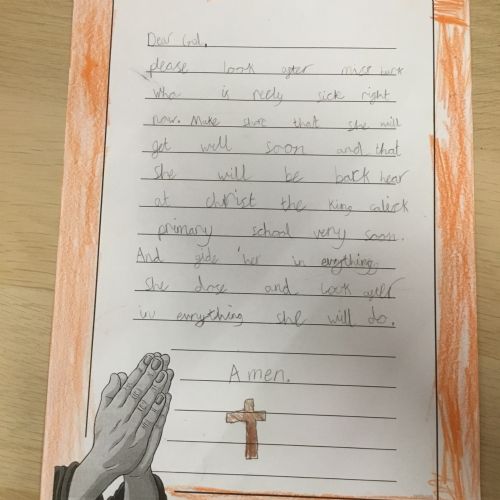 Dear God,
please look after miss buck
who is reely sick right
now. Make shore that she will
get well soon and that
she will be back hear
at christ the King calick
primary school very soon.
And gide her in evrything
she dose and look after
in evrything she will do.
Amen.